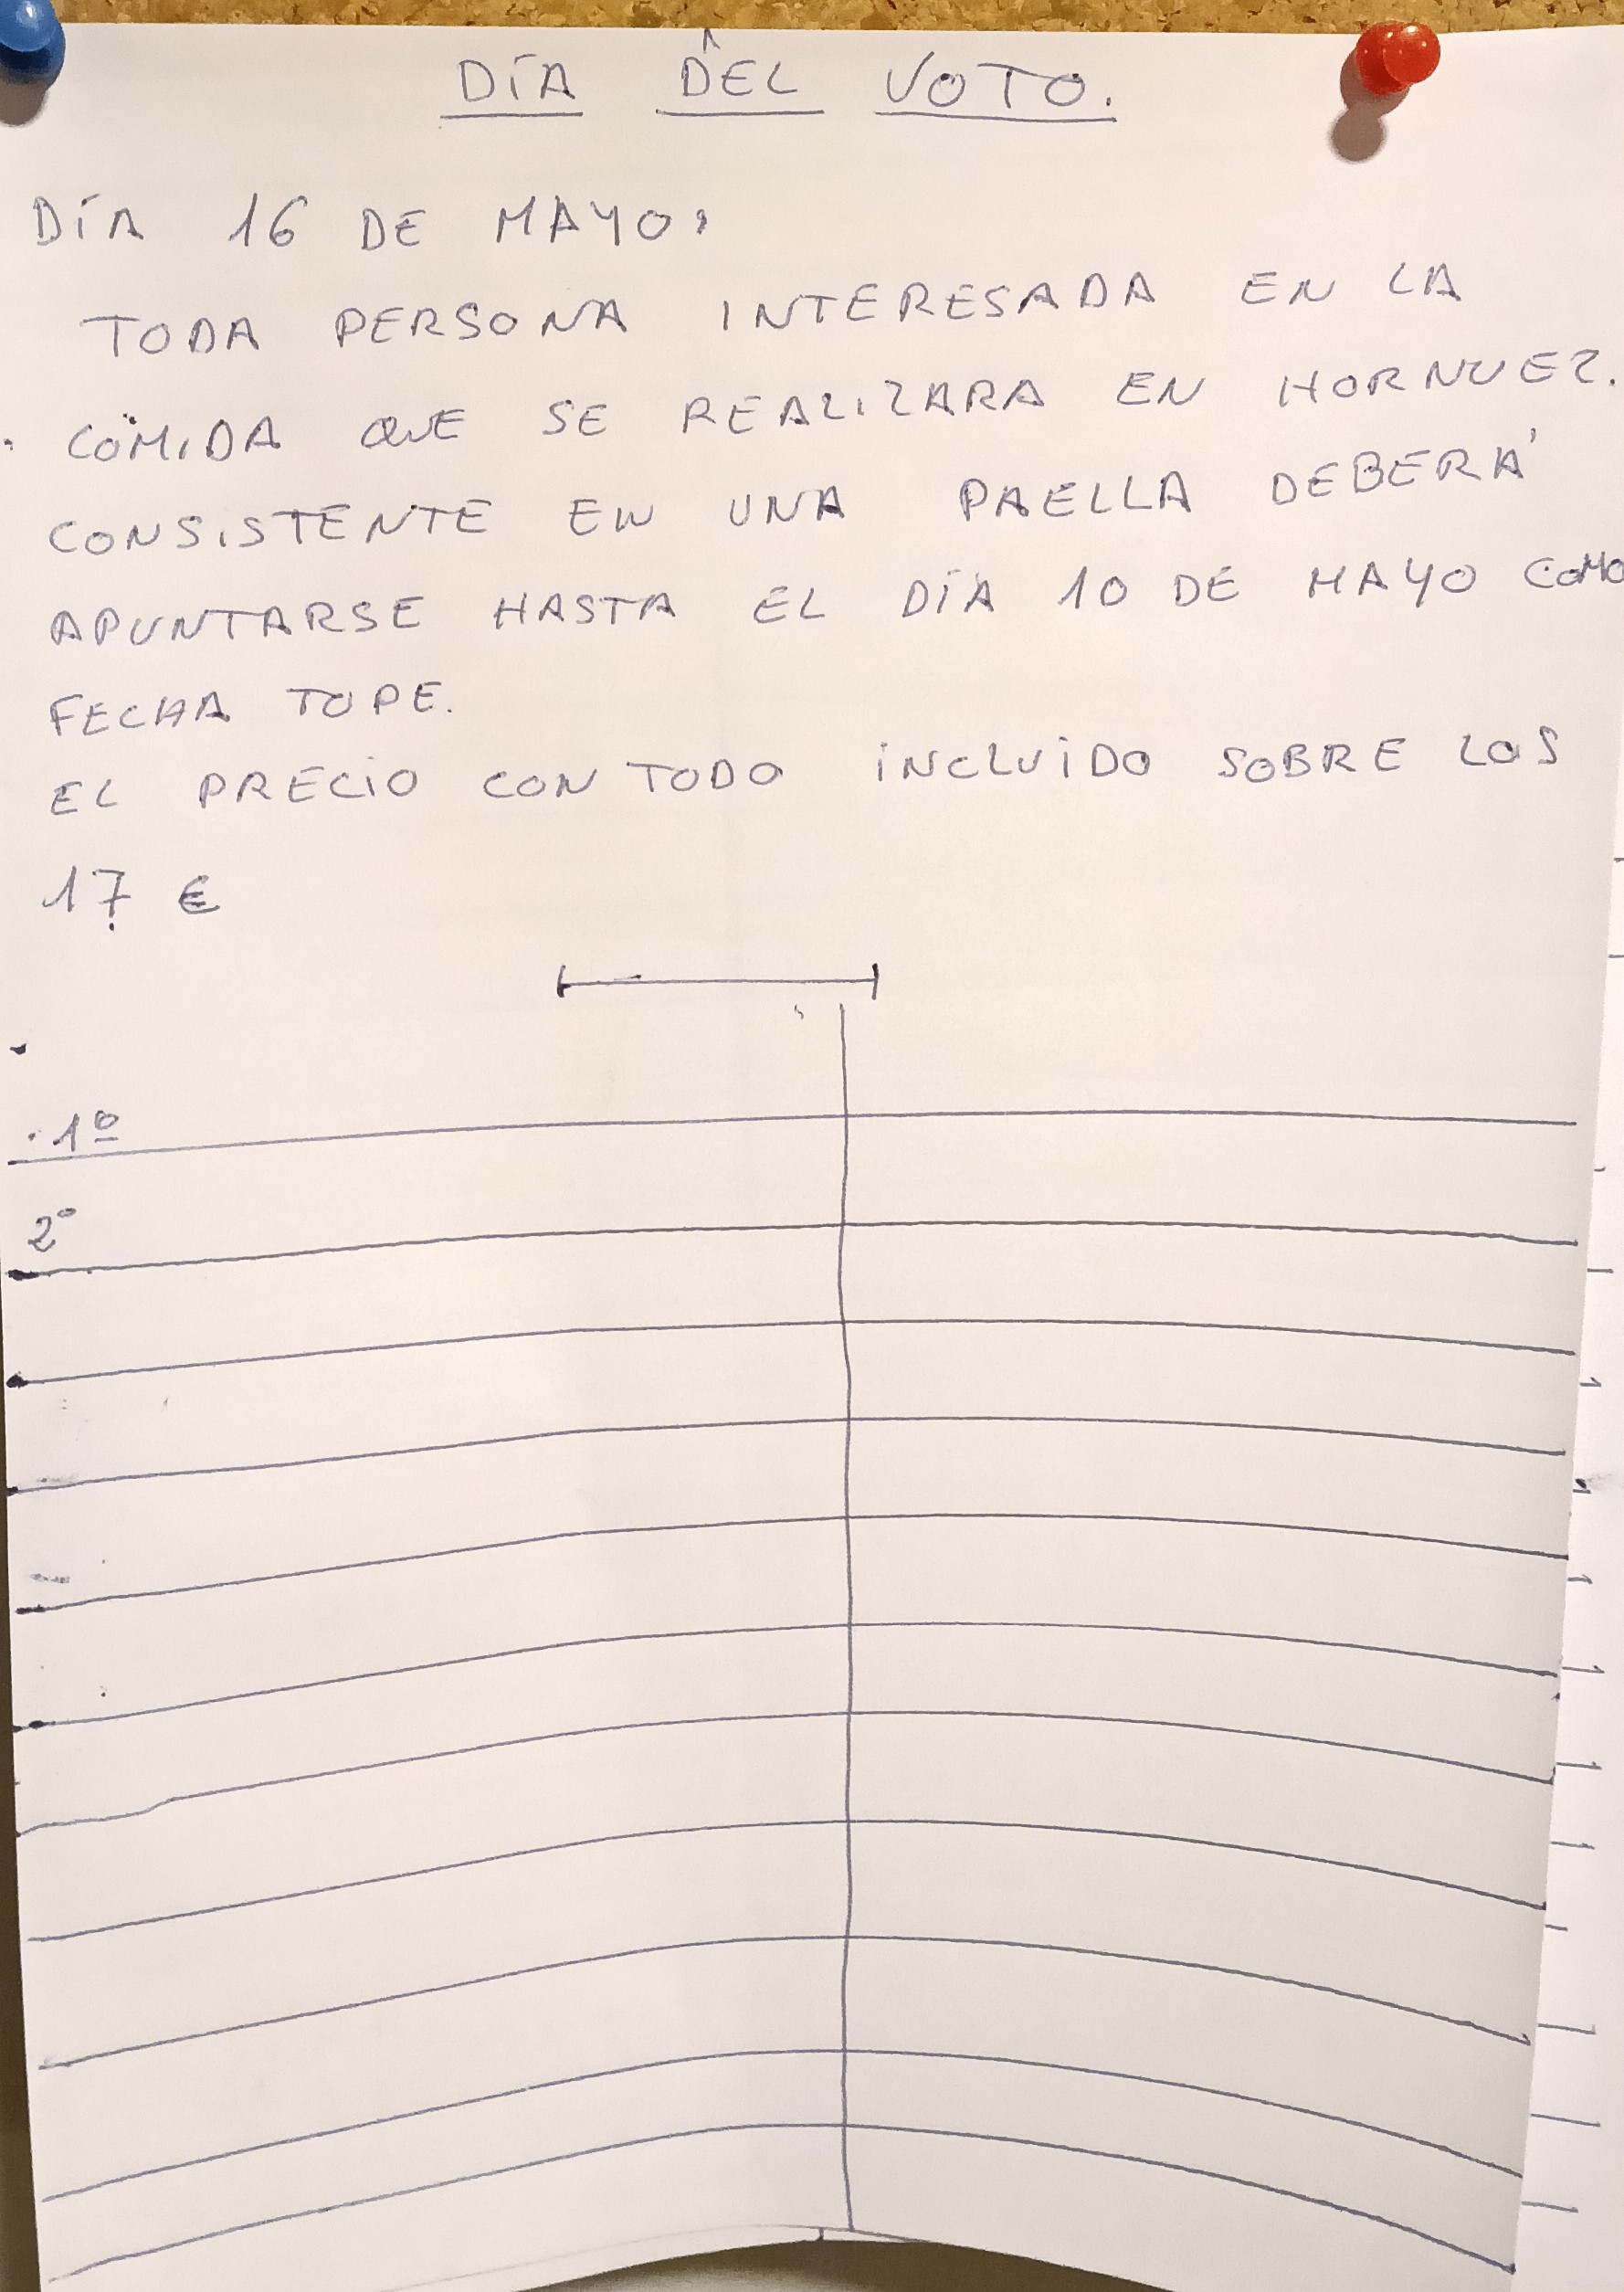 DÍA DEL VOTO.
DÍA 16 DE MAYO:
TODA PERSONA INTERESADA EN LA
COMIDA QUE SE REALIZARA EN HORNUEZ.
CONSISTENTE EN UNA PAELLA DEBERÁ
APUNTARSE HASTA EL DÍA 10 DE MAYO COMO
FECHA TOPE.
EL PRECIO CON TODO INCLUIDO SOBRE LOS
17 €
1º
2º